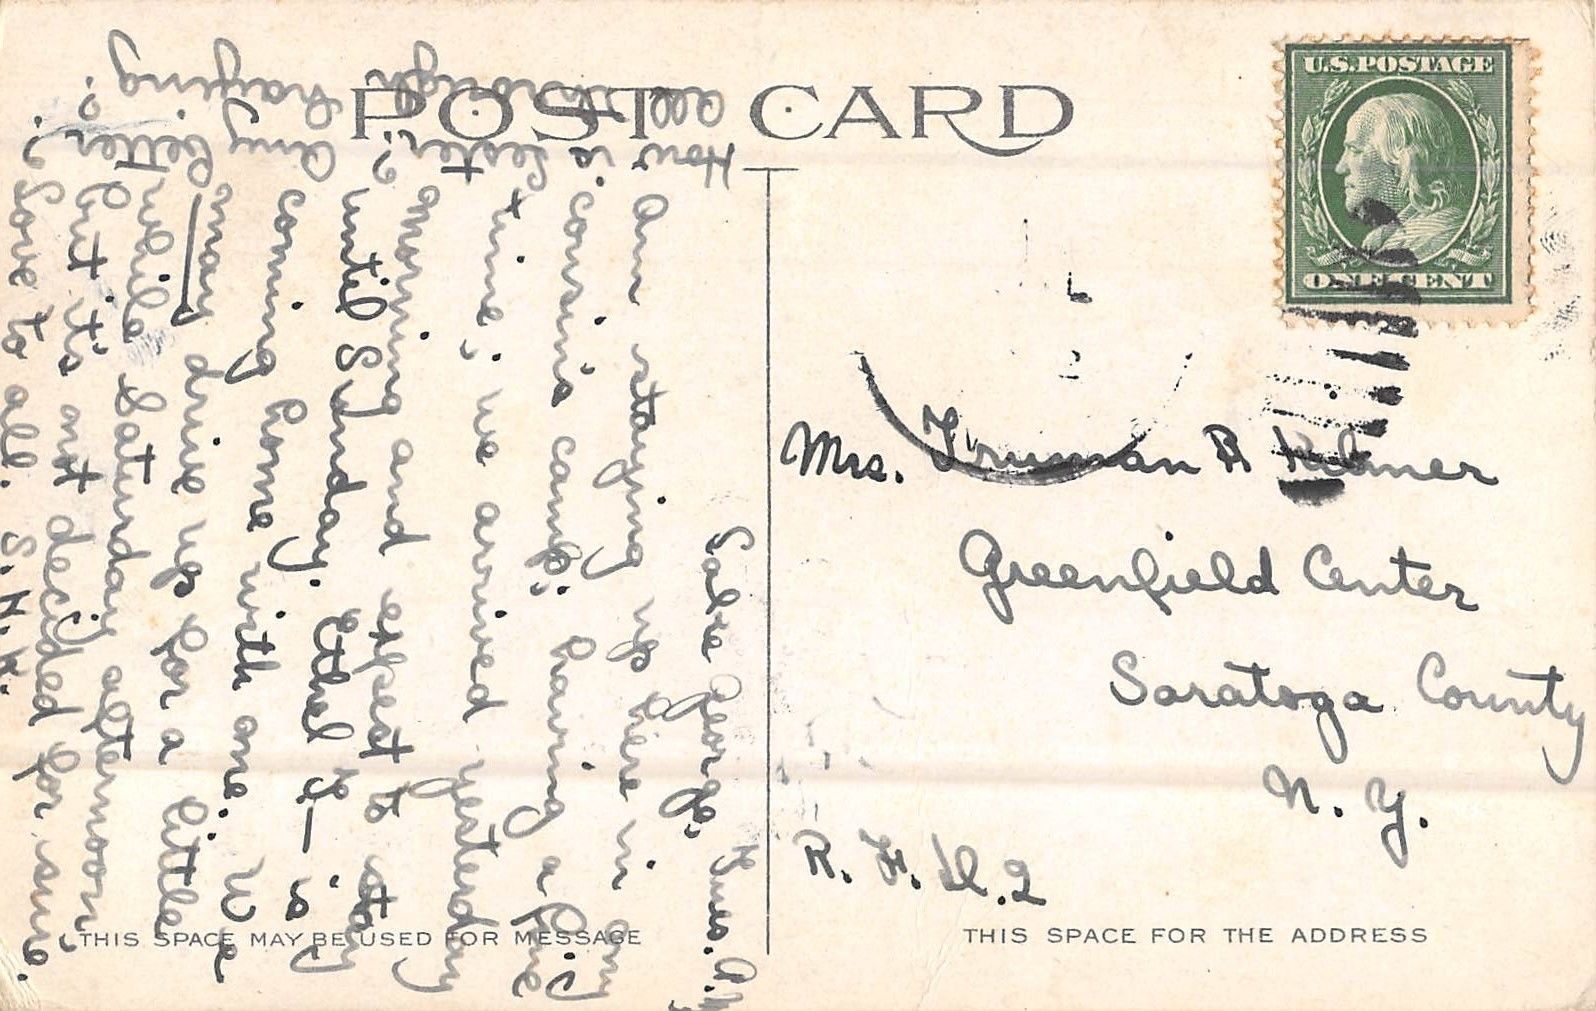 POST CARD
U.S. POSTAGE
ONE CENT
Lake George, Tues. A.M.
Am staying up here in my
cousins camp; having a fine
time; we arrived yesterday
morning and expect to stay
until Sunday. Ethel K— is
coming home with me. We
may drive up for a little
while Saturday afternoon;
but it's not decided for sure.
Love to all. S.H.K.
How is Lester? Any better?
All through haying?
Mrs. Truman R Kilmer
Greenfield Center
Saratoga County
N. Y.
R. F. D. 2
THIS SPACE MAY BE USED FOR MESSAGE
THIS SPACE FOR THE ADDRESS